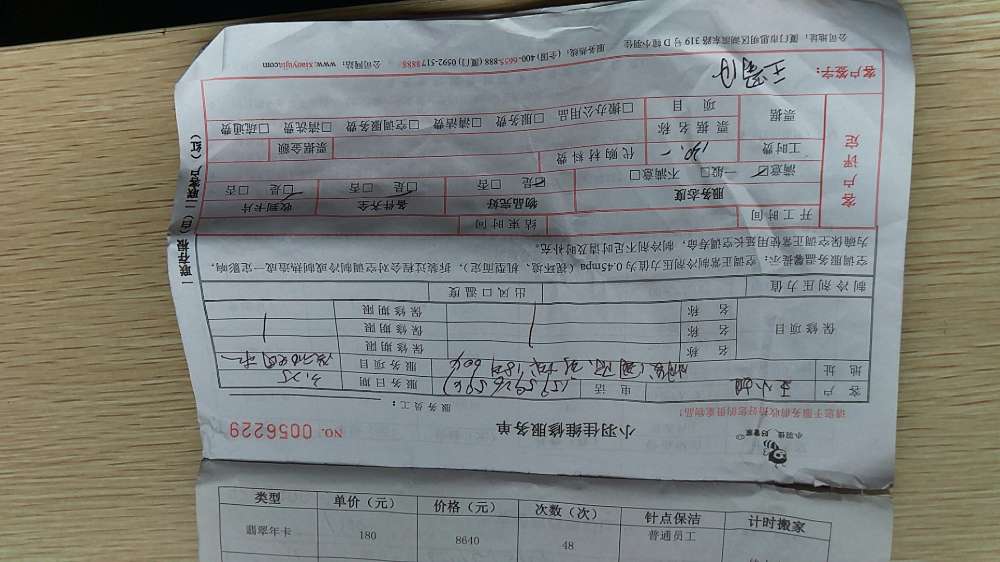 小羽佳，好管家
小羽佳维修服务单
NO. 0056229
请您于服务前收拾好您的贵重物品！
服务员工：
客户 王小姐 电话 15959265969 服务日期 3.25
地址 服务项目
保修项目 名称 保修期限
名称 保修期限
名称 保修期限
制冷剂压力值 出风口温度
空调服务温馨提示：空调正常制冷剂压力值为0.45mpa（视环境、机型而定），拆装过程会对空调制冷或制热造成一定影响，
为确保空调正常使用延长空调寿命，制冷剂不足时请及时补充。
开工时间 结束时间
客户评定
服务态度 物品完好 备件齐全 收到卡片
☑满意 □一般 □不满意 ☑是 □否 □是 □否 □是 □否
工时费 130.- 代购材料费 票据金额
票据 票据名称 项目
□搬办公用品 □服务费 □清洁费 □空调服务费 □清洗费 □疏通费
客户签字：
公司地址：厦门市思明区湖滨东路319号D幢小羽佳
服务热线：（全国）400-6655-888（厦门）0592-5178888 公司网站：www.xiaoyujia.com
一联存根（白）二联客户（红）
类型 单价（元） 价格（元） 次数（次） 针点保洁 计时搬家
翡翠年卡 180 8640 48 普通员工